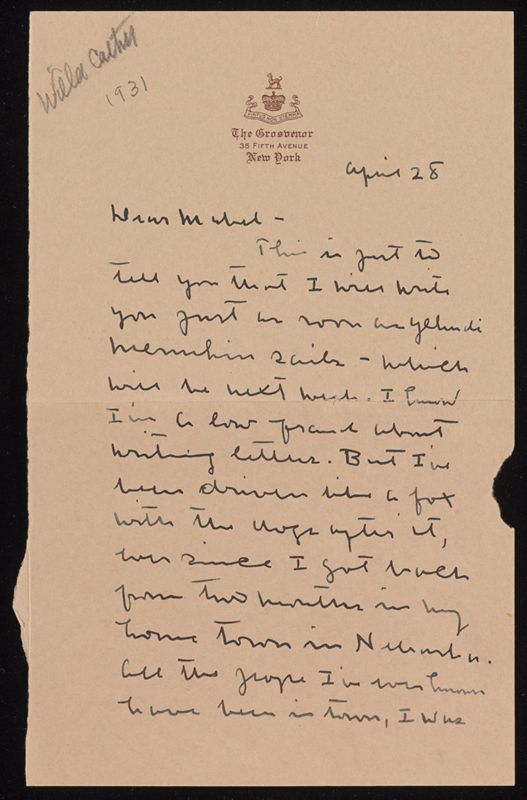 Willa Cather
1931
VIRTUS NON STEMMA
The Grosvenor
35 FIFTH AVENUE
New York
April 28
Dear Mabel -
This is just to
tell you that I will write
you just as soon as Yehudi
Menuhin sails - which
will be next week. I know
I'm a low fraud about
writing letters. But I've
been driven like a fox
with the dogs after it,
ever since I got back
from two months in my
home town in Nebraska.
All the people I've ever known
have been in town, I was